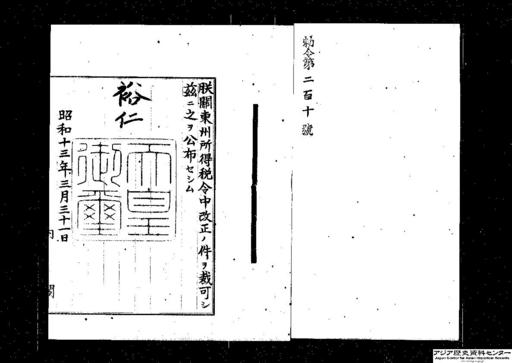 勅令第二百十號
朕關東州所得税令中改正ノ件ヲ裁可シ
茲ニ之ヲ公布セシム
裕仁
天皇御璽
昭和十三年三月三十一日
内閣
アジア歴史資料センター
Japan Center for Asian Historical Records